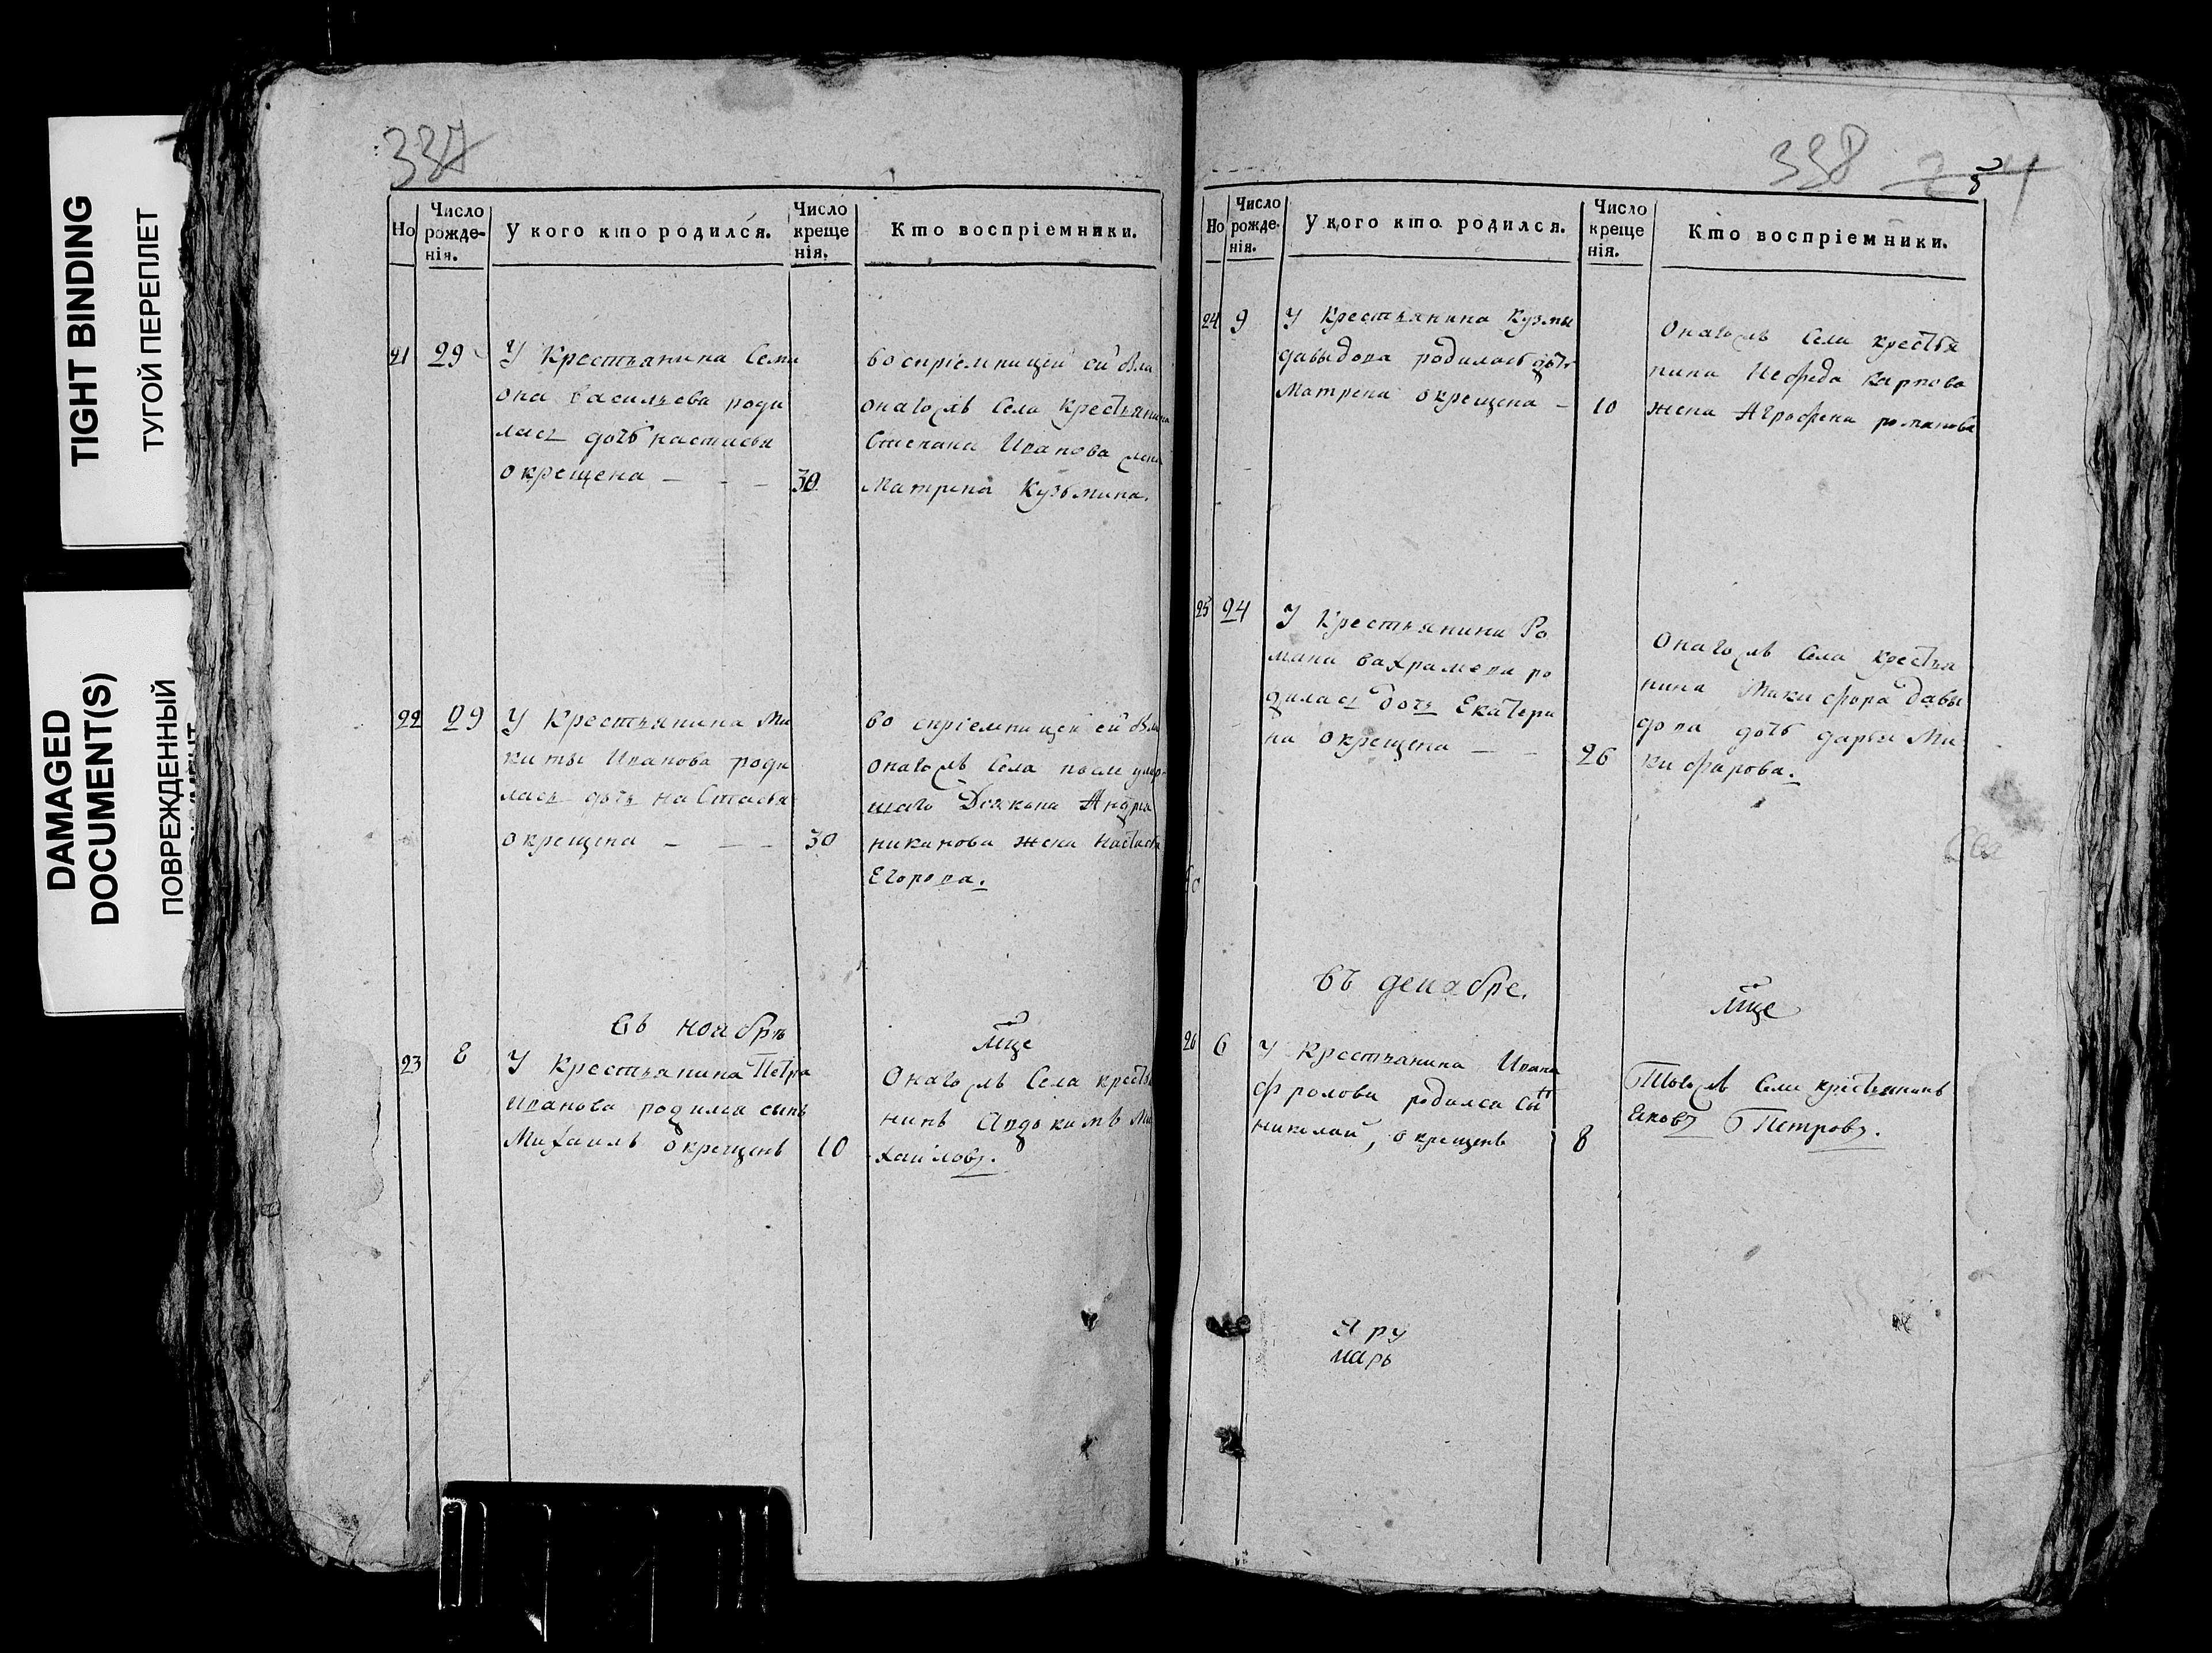 TIGHT BINDING
ТУГОЙ ПЕРЕПЛЕТ
DAMAGED
DOCUMENT(S)
ПОВРЕЖДЕННЫЙ
337
Но
Число рожденія.
У кого кто родился.
Число крещенія.
Кто воспріемники.
21 29 У Крестьянина Семи
она Васильева роди
лась дочь настасья
окрещена — — — 30
воспріемницей ей была
онагожъ Села Крестьянина
Степана Иванова жена
Матрена Кузьмина.
22 29 У Крестьянина Ми
киты Иванова роди
лась дочь настасья
окрещена — — — 30
воспріемницей ей была
онагожъ Села после умер
шаго Дьякона Андро
никанова жена настасья
Егорова.
въ ноябрѣ
мце
23 8 У Крестьянина Петра
Иванова родился сынъ
Михаилъ окрещенъ 10
Онагожъ Села крестья
нинъ Авдокимъ Ми
хайловъ.
338
Но
Число рожденія.
У кого кто родился.
Число крещенія.
Кто воспріемники.
24 9 У Крестьянина Кузмы
давыдова родилась дочь
Матрена окрещена — 10
Онагожъ Села крестья
нина Нефеда Карпова
жена Аграфена романова
25 24 У Крестьянина Ро
мана вахрамева ро
дилась дочь Екатери
на окрещена — — 26
Онагожъ Села крестья
нина Микифора давы
дова дочь дарья Ми
кифарова.
въ декабре.
мце
26 6 У Крестьянина Ивана
Фролова родился сынъ
николай, окрещенъ 8
Тогожъ Села крестьянинъ
Яковъ Петровъ.